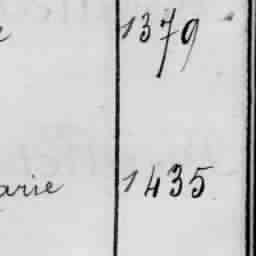 1379
arie 1435